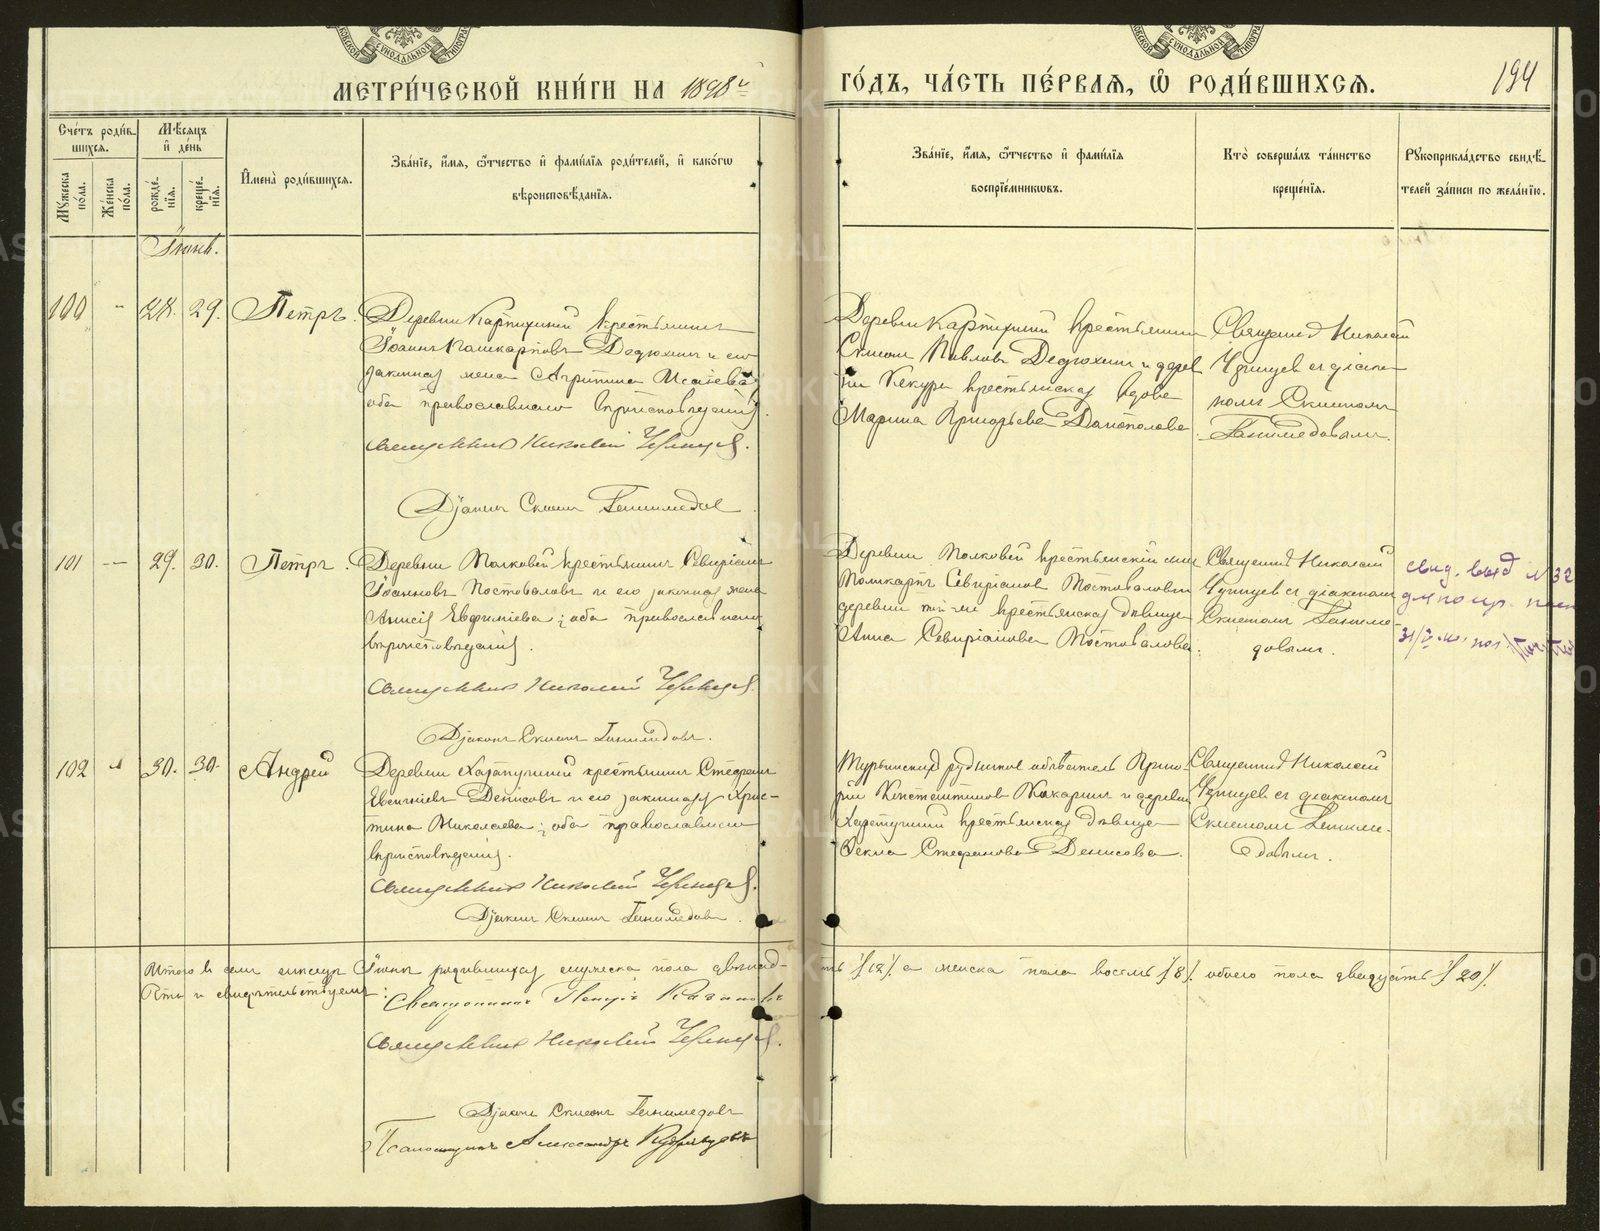 МЕТРИ́ЧЕСКОЙ КНИ́ГИ НА 1898й
ГО́ДЪ, ЧА́СТЬ ПЕ́РВАЯ, Ѿ РОДИ́ВШИХСЯ.
194
Сче́тъ роди́в-
шихся.
Мѣ́сяцъ
и҆ де́нь
Мꙋжеска по́ла.
Же́нска по́ла.
рожде́-
нїя.
креще́-
нїя.
И҆мена̀ роди́вшихся.
Зва́нїе, и҆́мя, ѻ҆́тчество и҆ фами́лїя роди́телей, и҆ како́гѡ
вѣроисповѣ́данїя.
Зва́нїе, и҆́мя, ѻ҆́тчество и҆ фами́лїя
воспрїе́мниковъ.
Кто̀ соверша́лъ та́инство
креще́нїя.
Рꙋкоприкла́дство свидѣ́-
телей за́писи по жела́нїю.
Іюнь.
100 - 28. 29. Петръ.
Деревни Карпихиной крестьянинъ
Іоаннъ Поликарповъ Дедюхинъ и его
законная жена Агрипина Исаева
оба православнаго вѣроисповѣданія.
Священникъ Николай
Діаконъ Симеонъ Ганимедовъ
Деревни Карпихиной крестьянинъ
Симеонъ Павловъ Дедюхинъ и дерев
ни Кекура крестьянская вдова
Марина Григорьева
Священникъ Николай
съ діако-
номъ Симеономъ
Ганимедовымъ.
101 -- 29. 30. Петръ.
Деревни Толковой крестьянинъ Севиріанъ
Іоанновъ Постоваловъ и его законная жена
Анисія Евфиміева; оба православнаго
вѣроисповѣданія.
Священникъ Николай
Діаконъ Симеонъ Ганимедовъ.
Деревни Толковой крестьянскій сынъ
Поликарпъ Севиріановъ Постоваловъ и
деревни той же крестьянская дѣвица
Анна Севиріанова Постовалова.
Священникъ Николай
съ діакономъ
Симеономъ Ганиме-
довымъ.
свид. выд № 32
102 30. 30. Андрей
Деревни крестьянинъ Стефанъ
Евгеніевъ Денисовъ и его законная Хрис-
тина Николаева; оба православнаго
вѣроисповѣданія.
Священникъ Николай
Діаконъ Симеонъ Ганимедовъ.
Турьинскихъ рудниковъ обыватель Григо-
рій Константиновъ и деревни
крестьянская дѣвица
Ѳекла Стефанова Денисова.
Священникъ Николай
съ діакономъ
Симеономъ Ганиме-
довымъ.
Итого въ семъ мѣсяцѣ Іюнѣ родившихся мужеска пола двѣнад-
цать /12/. а женска пола восемь /8/. обоего пола двадцать /20/.
и свидѣтельствуемъ:
Священникъ Петръ
Священникъ Николай
Діаконъ Симеонъ Ганимедовъ
Псаломщикъ Александръ